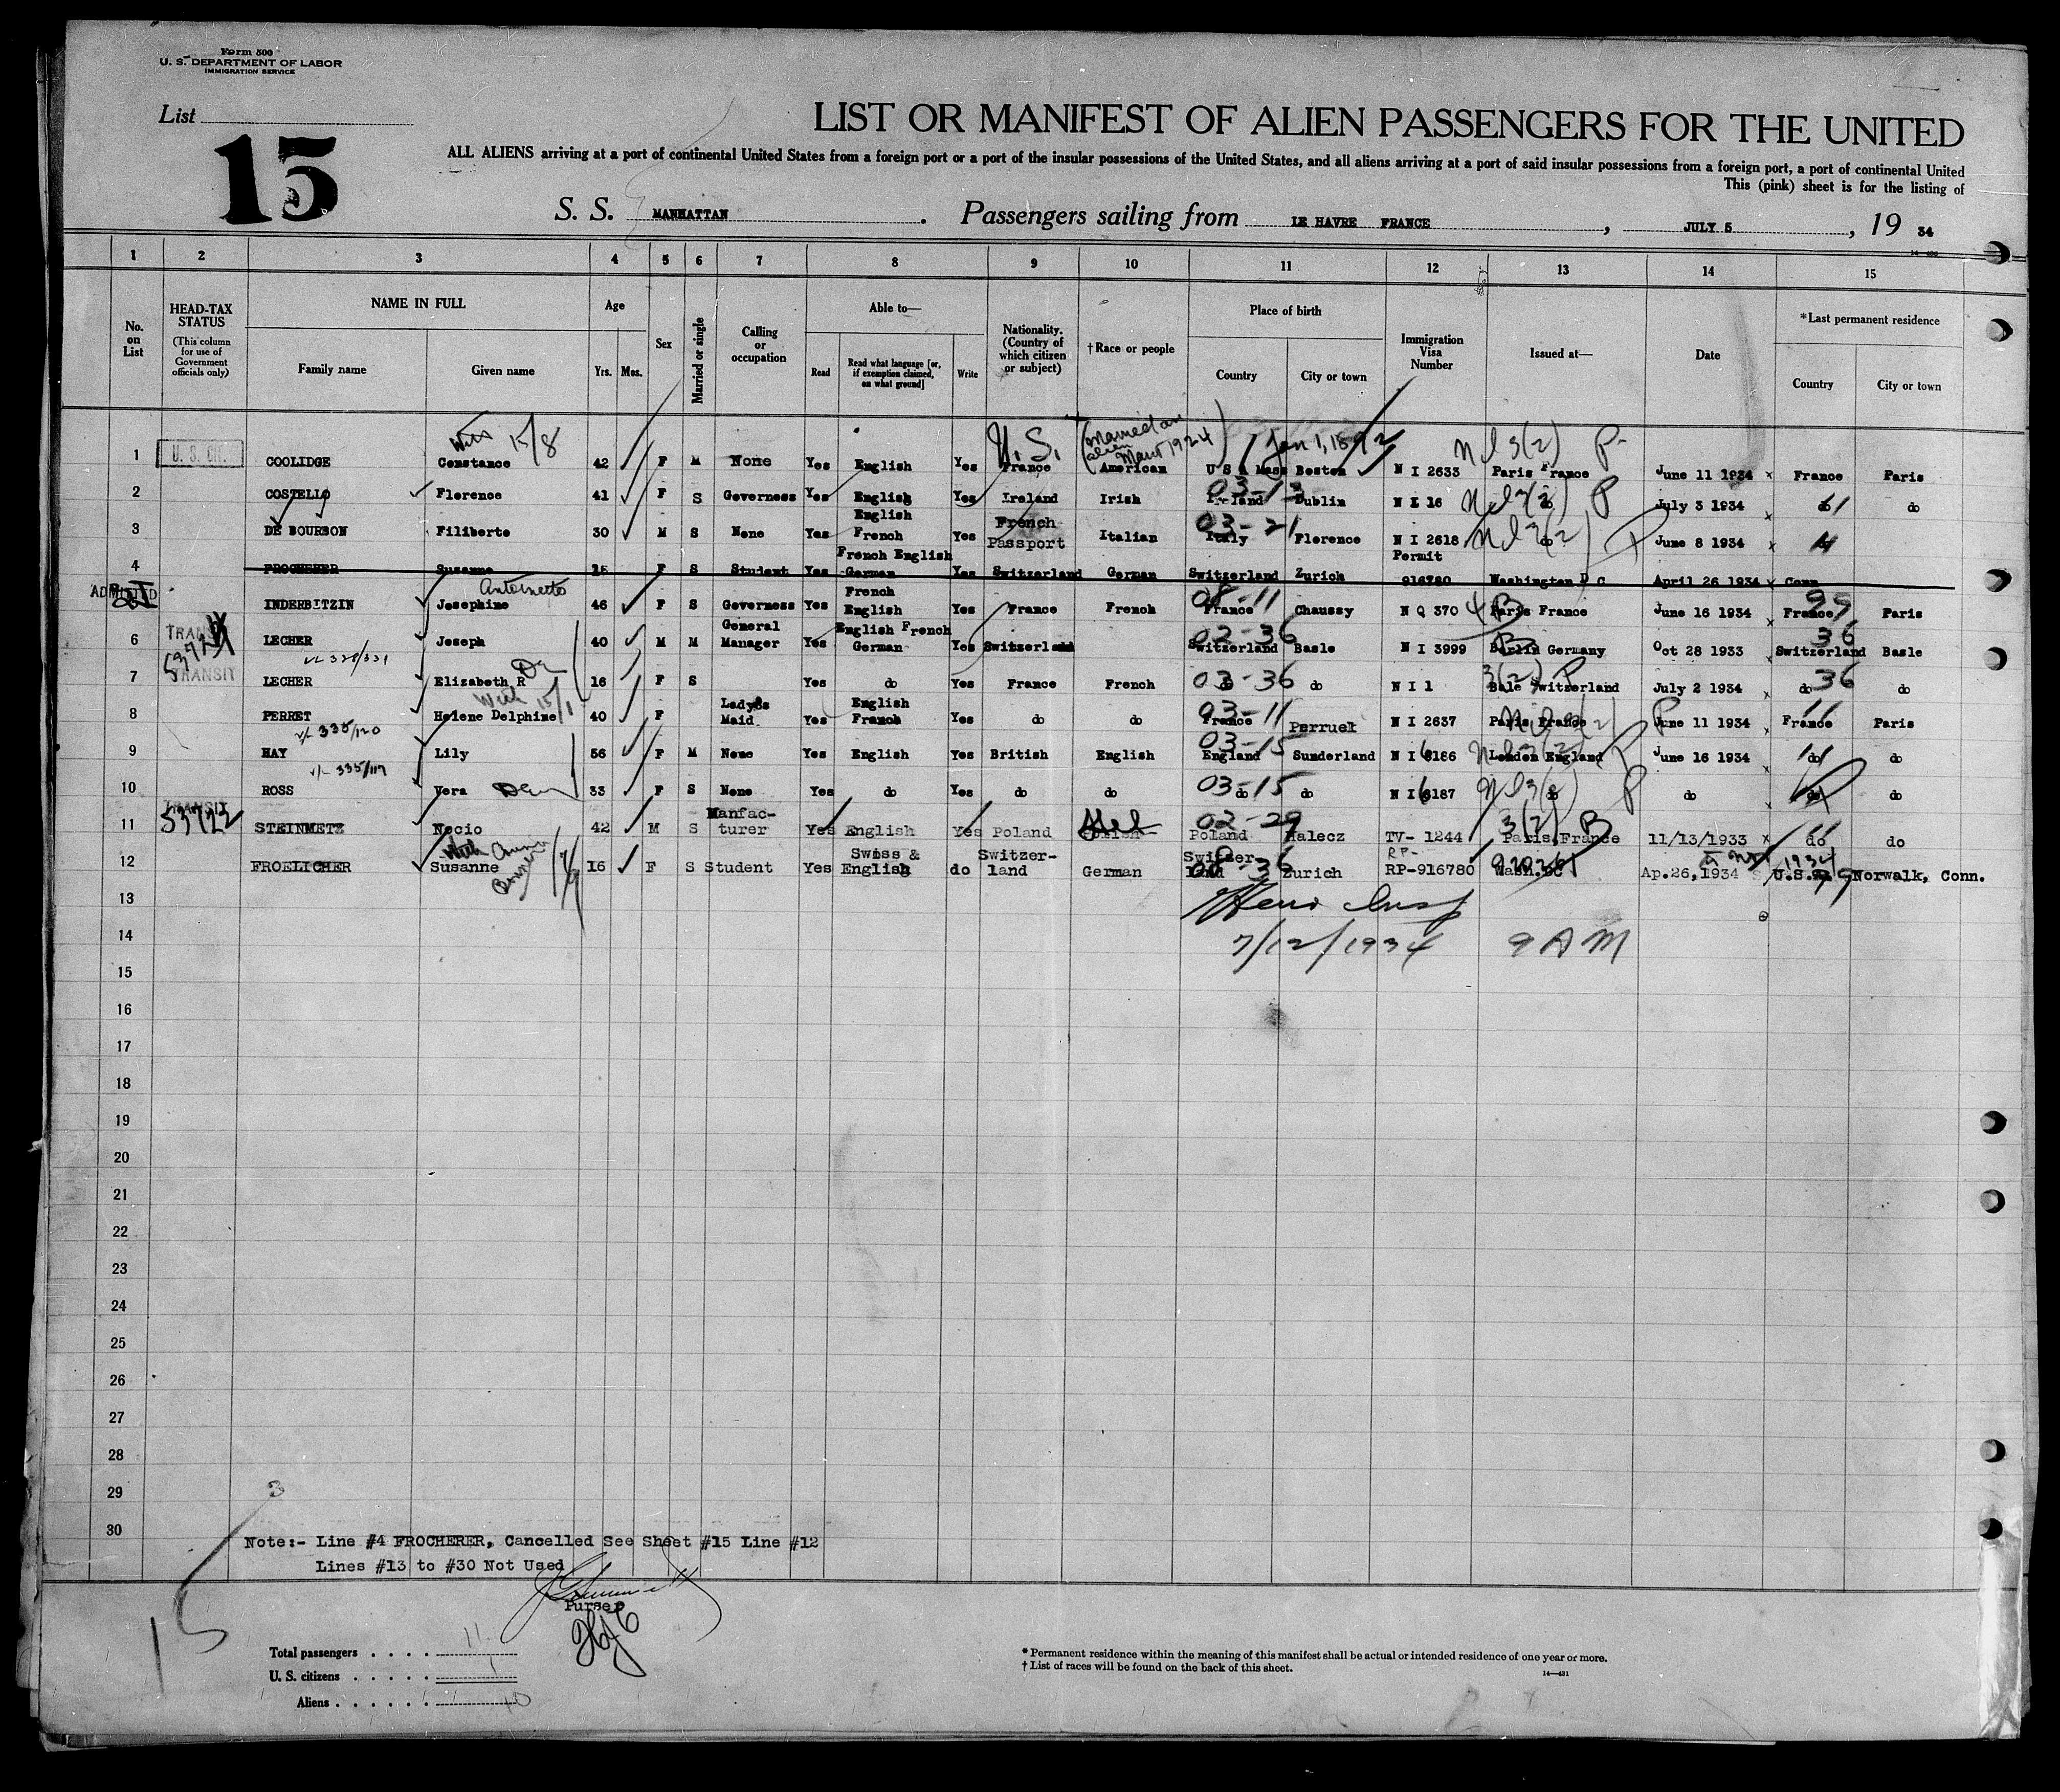 Form 500
U. S. DEPARTMENT OF LABOR
IMMIGRATION SERVICE
List
15
LIST OR MANIFEST OF ALIEN PASSENGERS FOR THE UNITED
ALL ALIENS arriving at a port of continental United States from a foreign port or a port of the insular possessions of the United States, and all aliens arriving at a port of said insular possessions from a foreign port, a port of continental United
This (pink) sheet is for the listing of
S. S. MANHATTAN . Passengers sailing from LE HAVRE FRANCE , JULY 5 , 19 34
1 2 3 4 5 6 7 8 9 10 11 12 13 14 15
No. on List
HEAD-TAX STATUS
(This column for use of Government officials only)
NAME IN FULL
Family name Given name
Age
Yrs. Mos.
Sex
Married or single
Calling or occupation
Able to—
Read Read what language [or, if exemption claimed, on what ground] Write
Nationality. (Country of which citizen or subject)
† Race or people
Place of birth
Country City or town
Immigration Visa Number
Issued at—
Date
* Last permanent residence
Country City or town
With 15/8 U.S. (Married an alien 1924) Jan 1, 1892 P
1 U.S. CIT. COOLIDGE Constance 42 F M None Yes English Yes France American U S A Mass Boston N I 2633 Paris France June 11 1934 France Paris
2 COSTELLO Florence 41 F S Governess Yes English Yes Ireland Irish Ireland 03-13 Dublin N I 16 do P July 3 1934 do do
3 DE BOURBON Filiberto 30 M S None Yes English French Yes French Passport Italian Italy 03-21 Florence N I 2618 do P June 8 1934 do
4 FROCHERER Susanne 15 F S Student Yes French English German Yes Switzerland German Switzerland Zurich Permit 916780 Washington D C April 26 1934 Conn
ADMITTED INDERBITZIN Josephine Antoinette 46 F S Governess Yes French English Yes France French France 08-11 Chaussy N Q 370 Paris France June 16 1934 France 99 Paris
6 TRANSIT LECHER Joseph 40 M M General Manager Yes English French German Yes Switzerland Switzerland 02-36 Basle N I 3999 Berlin Germany Oct 28 1933 Switzerland 36 Basle
7 TRANSIT LECHER Elizabeth R 16 F S Yes do Yes France French do 03-36 do N I 1 3(2) P Bale Switzerland July 2 1934 do 36 do
8 PERRET Helene Delphine With 15/1 40 F Ladys Maid Yes English French Yes do do France 03-11 Perruel N I 2637 Paris France P June 11 1934 France 11 Paris
9 HAY Lily 56 F M None Yes English Yes British English England 03-15 Sunderland N I 6186 London England P June 16 1934 do do
10 ROSS Vera 33 F S None Yes do Yes do do do 03-15 do N I 6187 do P do do do
11 TRANSIT 53722 STEINMETZ Nocio 42 M S Manfac-turer Yes English Yes Poland Heb Poland 02-29 Halecz TV- 1244 3(2) B Paris, France 11/13/1933 do do
12 FROELICHER Susanne 16 F S Student Yes Swiss & English do Switzer-land German Switzer-land 08-36 Zurich RP-916780 Wash.DC Ap.26,1934 U.S. Norwalk, Conn.
13
14 7/12/1934 9 AM
15
16
17
18
19
20
21
22
23
24
25
26
27
28
29
30
Note:- Line #4 FROCHERER, Cancelled See Sheet #15 Line #12
Lines #13 to #30 Not Used
Purser
Total passengers . . . . 11
U. S. citizens . . . . . 1
Aliens . . . . . . 10
15
* Permanent residence within the meaning of this manifest shall be actual or intended residence of one year or more.
† List of races will be found on the back of this sheet.
14—431